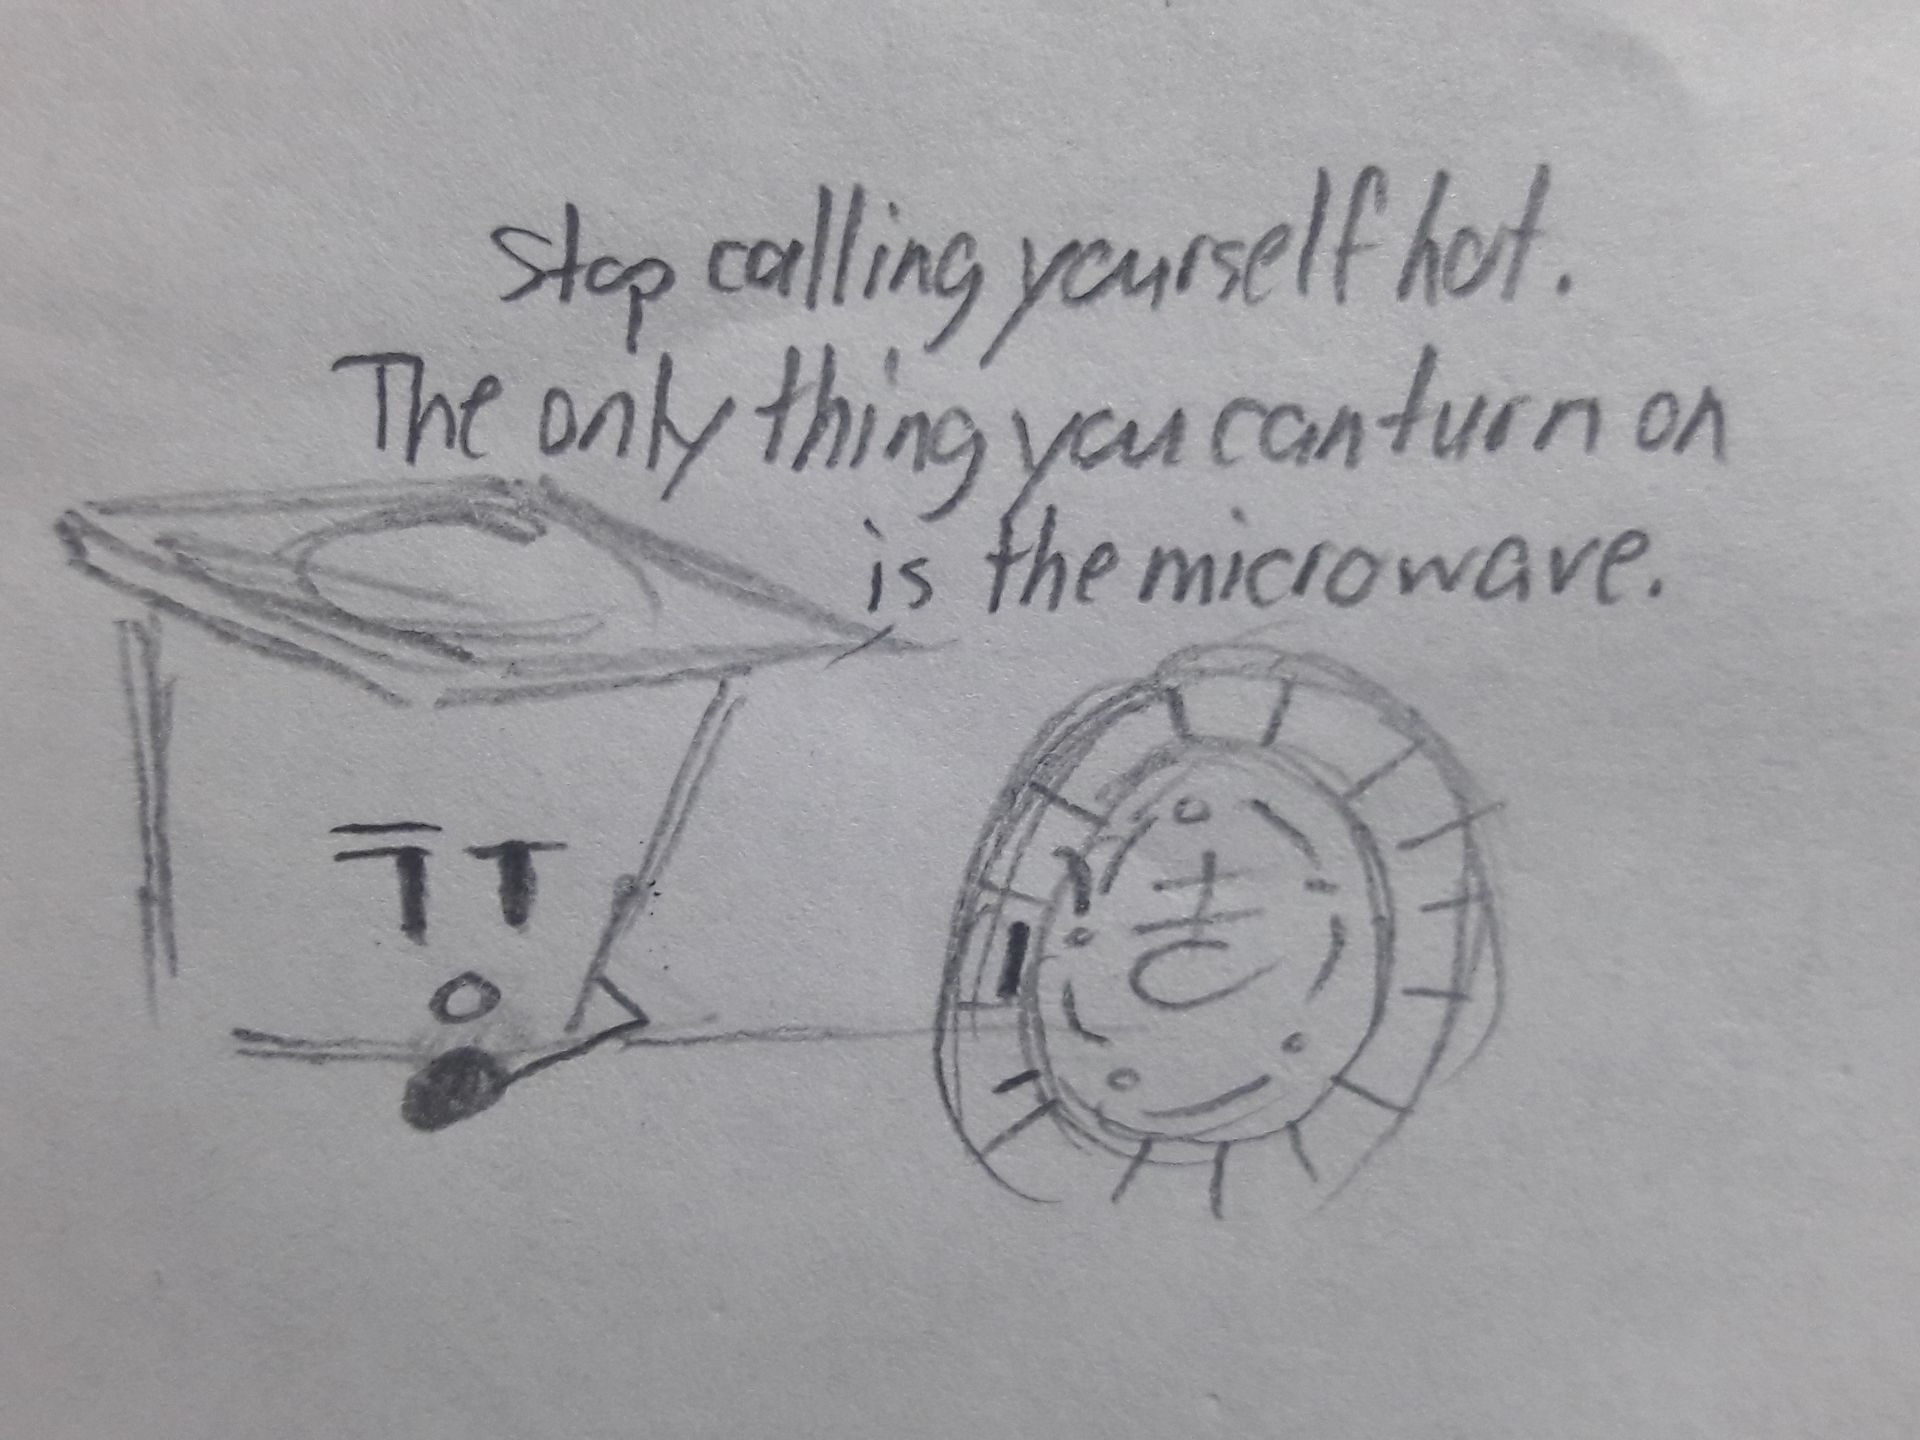 Stop calling yourself hot.
The only thing you can turn on
is the microwave.